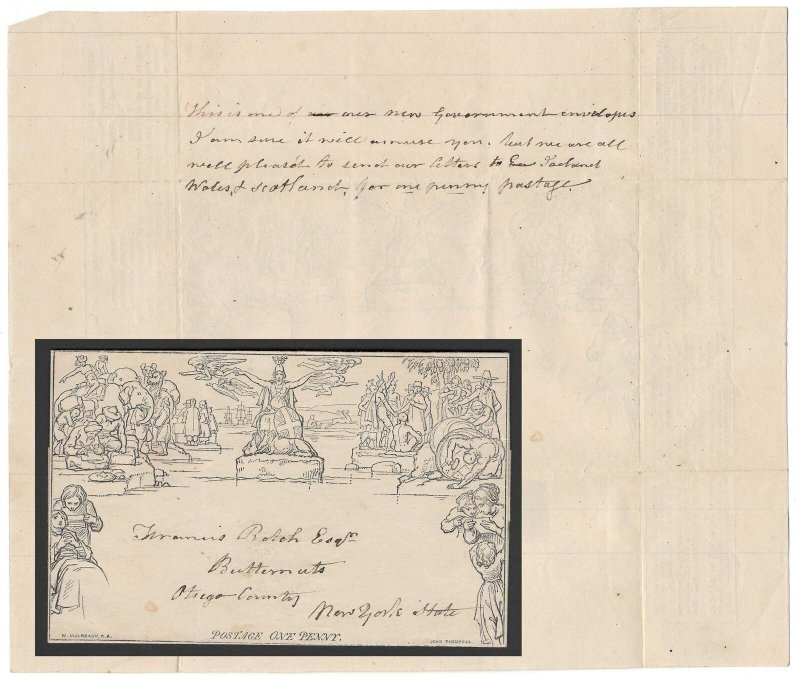 This is one of our new Government envelopes
I am sure it will amuse you. but we are all
well pleased to send our letters to Ireland
Wales, & Scotland, for one penny postage.
Francis Rotch Esqr.
Butternuts
Otsego County
New York State
W. MULREADY, R.A.
POSTAGE ONE PENNY.
JOHN THOMPSON